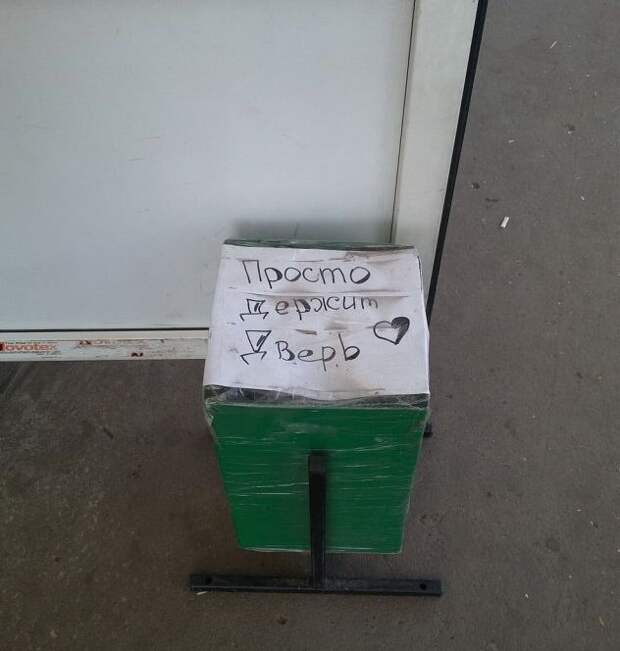 Просто
Держит
Дверь
ovotex